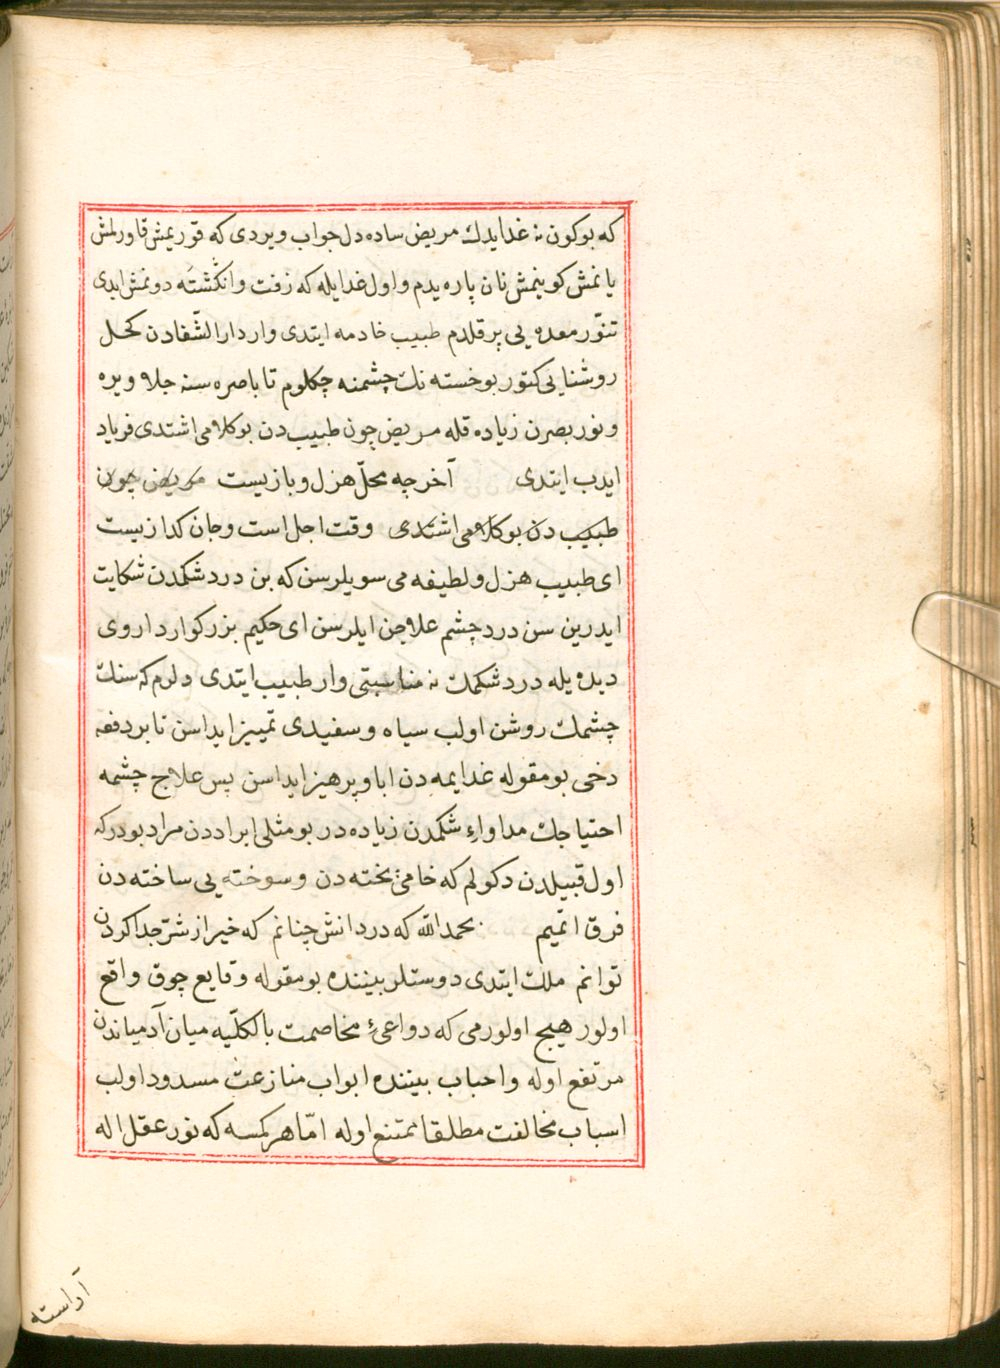 که بوکون نه غدا یدك مریض ساده دل جواب ویردی که قوریمش قاورلمش
یانمش کوینمش نان پاره یدم و اول غدا یله که زفت وانکشته دونمش ایدی
تنّور معده یی پر قلدم طبیب خادمه ایتدی وار دارالشّفادن کحل
روشنایی کتور بو خسته نك چشمنه چکلوم تا باصره سنه جلا ویره
و نور بصرن زیاده قله مریض چون طبیب دن بو کلامی اشتدی فریاد
ایدب ایتدی آخر چه محلّ هزل و بازیست مریض چون
طبیب دن بو کلامی اشتدی وقت اجل است و جان کدازیست
ای طبیب هزل و لطیفه می سویلرسن که بن درد شکمدن شکایت
ایدرین سن درد چشم علاجن ایلرسن ای حکیم بزرکوار داروی
دیده یله درد شکمك نه مناسبتی وار طبیب ایتدی دلرم که سنك
چشمك روشن اولب سیاه و سفیدی تمییز ایداسن تا بر دفعه
دخی بو مقوله غدا یمه دن ابا و پرهیز ایداسن پس علاج چشمه
احتیاجك مداواءِ شکمدن زیاده در بو مثلی ایراددن مراد بودر که
اول قبیلدن دکولم که خامی پخته دن و سوخته یی ساخته دن
فرق اتمیم بحمدالله که در دانش چنانم که خیر از شرّ جدا کردن
توانم ملك ایتدی دوستلر بیننده بو مقوله وقایع چوق واقع
اولور هیچ اولورمی که دواعیِٔ مخاصمت بالکلّیه میان آدمیاندن
مرتفع اوله و احباب بیننده ابواب منازعت مسدود اولب
اسباب مخالفت مطلقا ممتنع اوله امّا هر کمسه که نور عقل اله
آراسته